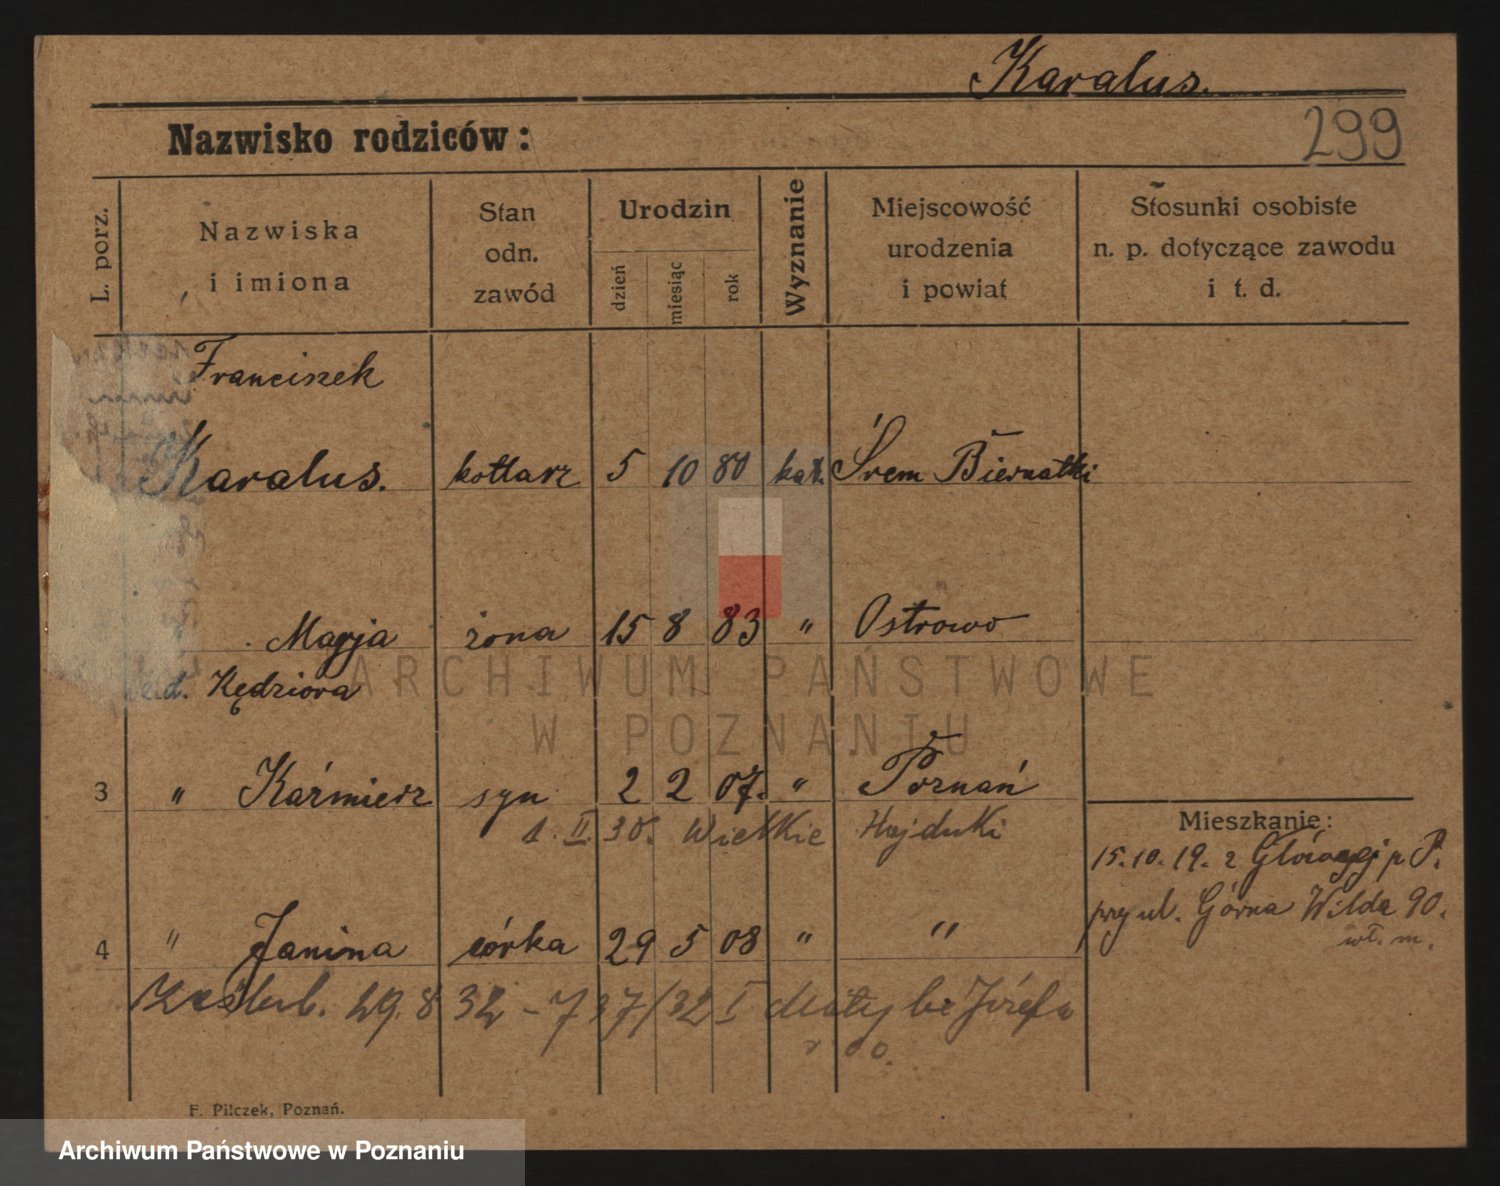 Karalus.
Nazwisko rodziców:
299
L. porz.
Nazwiska
i imiona
Stan
odn.
zawód
Urodzin
dzień
miesiąc
rok
Wyznanie
Miejscowość
urodzenia
i powiat
Stosunki osobiste
n. p. dotyczące zawodu
i t. d.
Franciszek
Karalus. kotlarz 5 10 80 kat. Śrem Biernatki
Marja żona 15 8 83 " Ostrowo
Kędziora
ARCHIWUM PAŃSTWOWE
W POZNANIU
3 " Kaźmierz syn 2 2 07. " Poznań
1. II. 30. Wielkie Hajduki
Mieszkanie:
15.10.19. z Głównej p P.
przy ul. Górna Wilda 90.
wł. m.
4 " Janina córka 29 5 08 " "
29.8 32 - 737/32 I Józefa
F. Pilczek, Poznań.
Archiwum Państwowe w Poznaniu